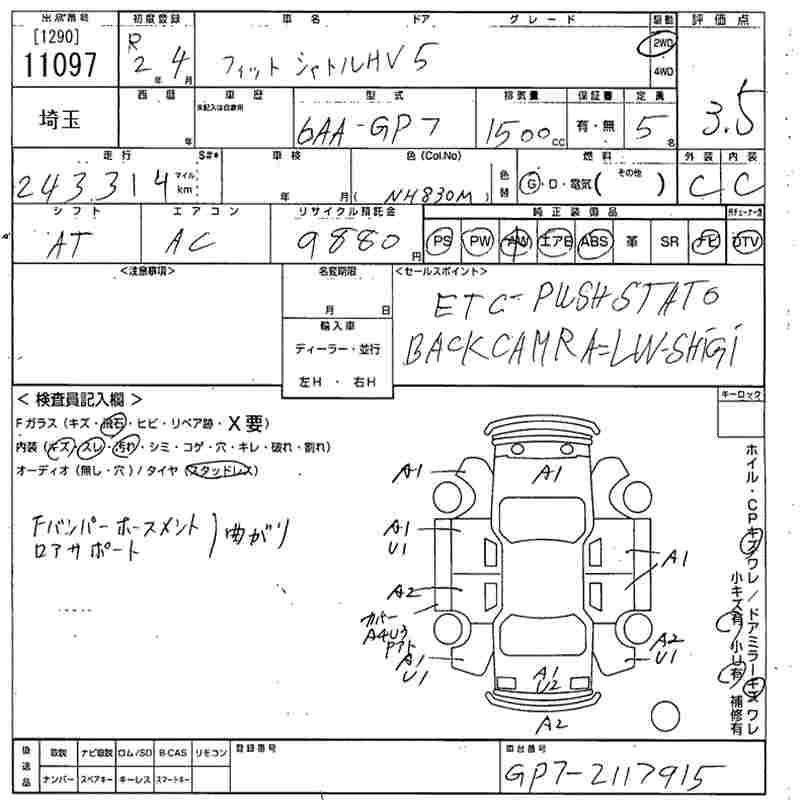 出品番号 初度登録 車名 ドア グレード 駆動 評価点
[1290]
11097 R2年 4月 フィット シャトルHV 5 2WD 4WD 3.5
埼玉 西暦 年 車歴 未記入は自家用 型式 6AA-GP7 排気量 1500cc 保証書 有・無 定員 5名
走行 S#* 車検 色(Col.No) 色替 燃料 外装 内装
243,314 マイル km 年 月 ( NH830M ) G・D・電気( その他 ) C C
シフト エアコン リサイクル預託金 純正装備品
AT AC 9880円 PS PW AW エアB ABS 革 SR ナビ DTV
<注意事項> 名変期限 <セールスポイント>
月 日
輸入車
ディーラー・並行
左H ・ 右H
ETC- PUSHSTATO
BACKCAMRA=LW-SHIGI
キーロック
<検査員記入欄>
Fガラス(キズ・飛石・ヒビ・リペア跡・X要)
内装(キズ・スレ・汚れ・シミ・コゲ・穴・キレ・破れ・割れ)
オーディオ(無し・穴)/タイヤ(スタッドレス)
Fバンパーホースメント
ロアサポート
)曲がり
A1
A1
A1
U1
A1
A2
カバー
A4U3
アト
A1
U1
A2
U1
A1
U2
A2
ホイル・CPキズ/ワレ/ドアミラーキズ ワレ
小キズ有 小U有/補修有
後送品 取説 ナビ取説 ロム/SD B-CAS リモコン 登録番号 車台番号
ナンバー スペアキー キーレス スマートキー GP7-2117915